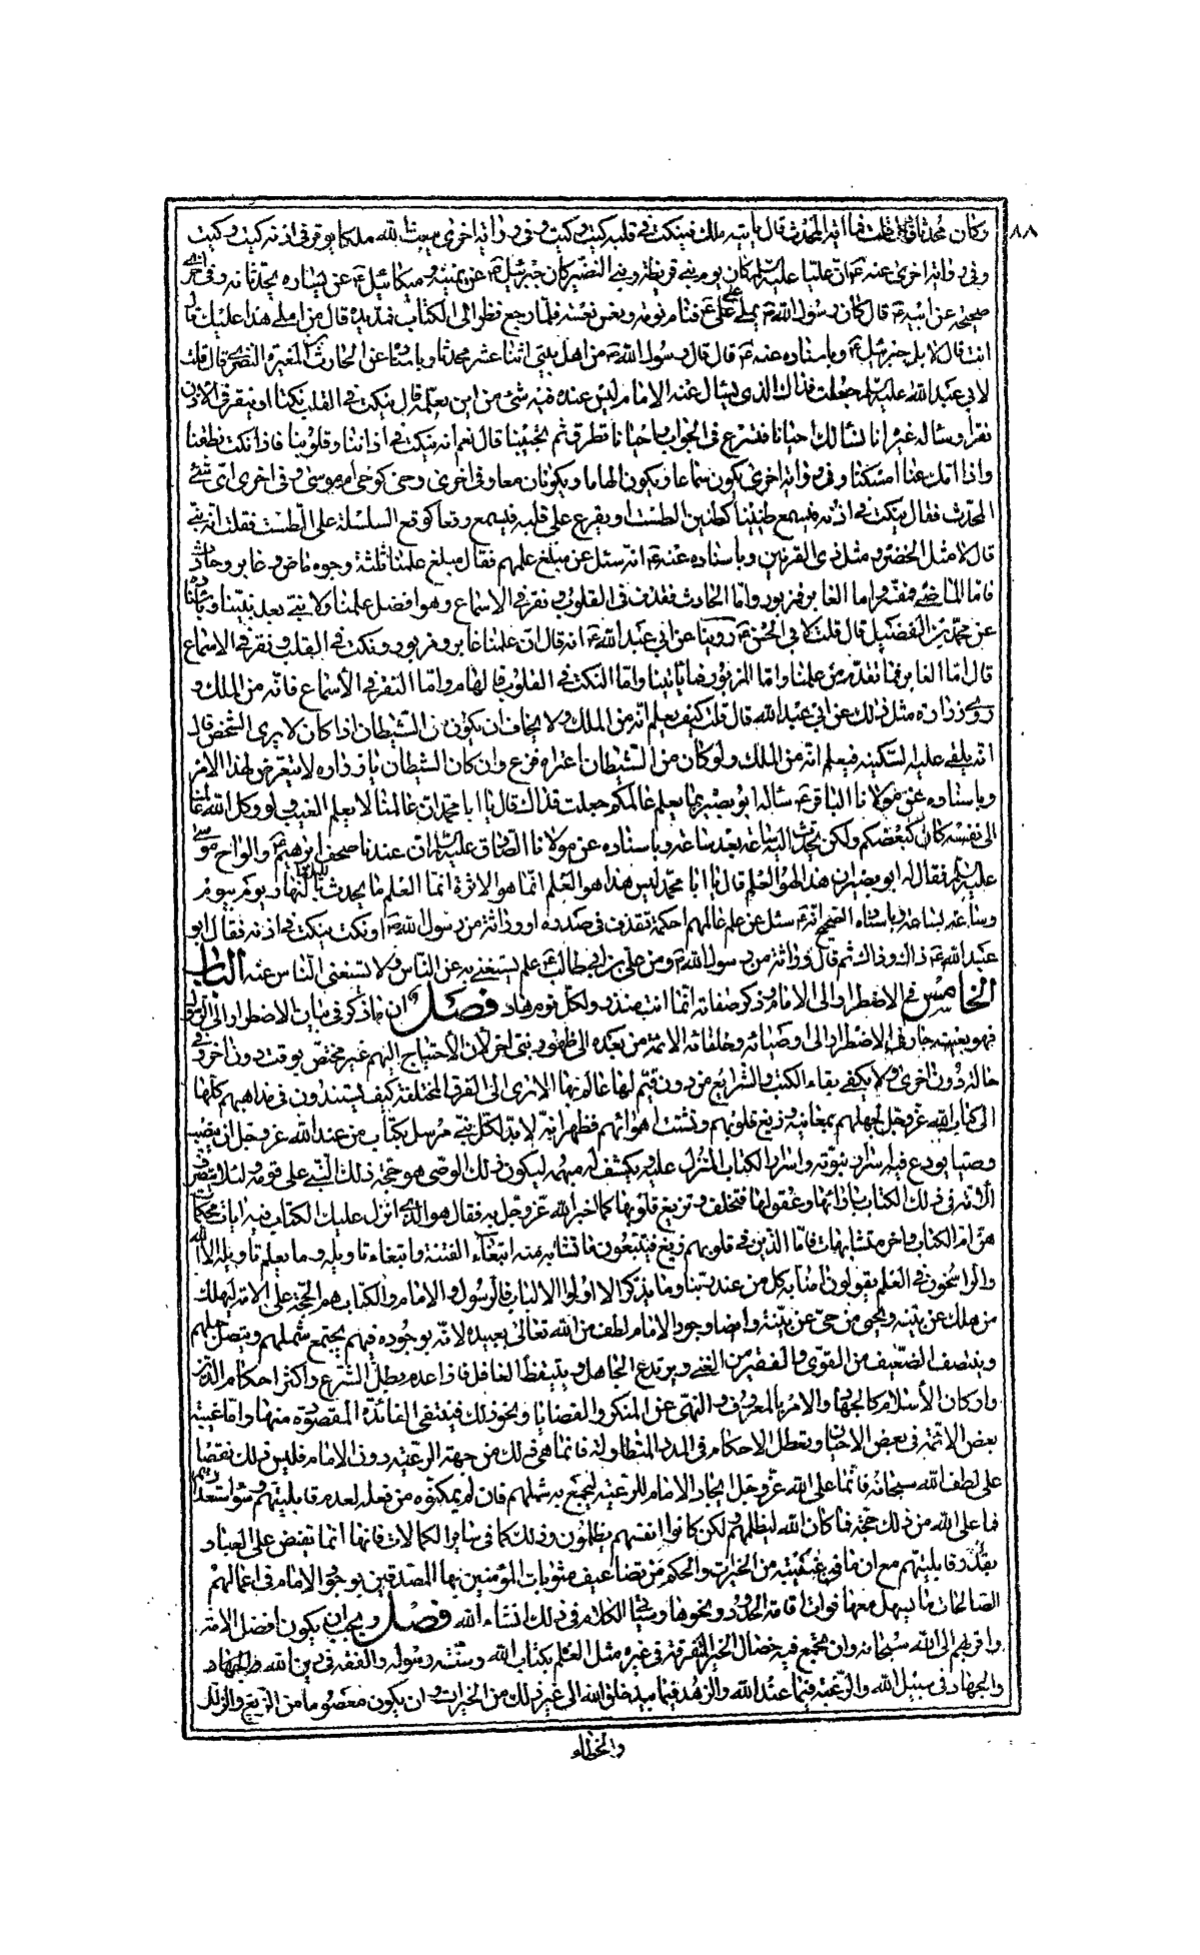 ٨٨
وكان محدثا قلت فما اية المحدث قال ياتيه ملك فينكت في قلبه كيت وكيت وفي رواية اخرى يبعث الله ملكا يوقر في اذنه كيت وكيت
وفي رواية اخرى عنه ع ان عليا عليه السلم كان يوم بني قريظة وبني النضير كان جبرئيل ع عن يمينه وميكائيل ع عن يساره يحدثانه وفي اخرى
صحيحة عن ابيه ع قال كان رسول الله ص يملي على علي ع فنام نومة ونعس نعسة فلما رجع نظر الى الكتاب فمد يده قال من املى هذا عليك قال
انت قال لا بل جبرئيل ع وباسناده عنه ع قال قال رسول الله ص من اهل بيتي اثنا عشر محدثا وباسناده عن الحارث بن المغيرة النضري قال قلت
لابي عبد الله عليه السلم جعلت فداك الذي يسال عنه الامام ليس عنده فيه شئ من اين يعلمه قال ينكت في القلب نكتا او ينقر في الاذن
نقرا وساله غيره انا نسالك احيانا فتسرع في الجواب واحيانا تطرق ثم تجيبنا قال نعم انه ينكت في اذاننا وقلوبنا فاذا نكت نطقنا
واذا امسك عنا امسكنا وفي رواية اخرى يكون سماعا ويكون الهاما ويكونان معا وفي اخرى وحي كوحي ام موسى وفي اخرى اي شئ
المحدث فقال ينكت في اذنه فيسمع طنينا كطنين الطست او يقرع على قلبه فيسمع وقعا كوقع السلسلة على الطست فقلت انه نبي
قال لا مثل الخضر ومثل ذي القرنين وباسناده عنه ع انه سئل عن مبلغ علمهم فقال مبلغ علمنا ثلثة وجوه ماض وغابر وحادث
فاما الماضي فمفسر واما الغابر فمزبور واما الحادث فقذف في القلوب ونقر في الاسماع وهو افضل علمنا ولا نبي بعد نبينا وباسناده
عن محمد بن الفضيل قال قلت لابي الحسن ع روينا عن ابي عبد الله ع انه قال ان علمنا غابر ومزبور ونكت في القلب ونقر في الاسماع
قال اما الغابر فما تقدم من علمنا واما المزبور فما ياتينا واما النكت في القلوب فالهام واما النقر في الأسماع فانه من الملك و
روى زرارة مثل ذلك عن ابي عبد الله قال قلت كيف يعلم انه من الملك ولا يخاف ان يكون من الشيطان اذا كان لا يرى الشخص قال
انه يلقى عليه السكينة فيعلم انه من الملك ولو كان من الشيطان اعتراه فزع وان كان الشيطان يا زرارة لا يتعرض لهذا الامر
وباسناده عن مولانا الباقر ع ساله ابو بصير بما يعلم عالمكم جعلت فداك قال يا ابا محمد ان عالمنا لا يعلم الغيب ولو وكل الله عالمنا
الى نفسه كان كبعضكم ولكن يحدث اليه ساعة بعد ساعة وباسناده عن مولانا الصادق عليه السلم ان عندنا صحف ابرهيم ع والواح موسى
عليه السلم فقال له ابو بصير ان هذا لهو العلم قال يا ابا محمد ليس هذا هو العلم انما هو الاثرة انما العلم ما يحدث بالليل والنهار يوم بيوم
وساعة بساعة وباسناده الصحيح انه ع سئل عن علم عالمهم احكمة تقذف في صدره او وراثة من رسول الله ص او نكت ينكت في اذنه فقال ابو
عبد الله ع ذاك وذاك ثم قال وراثة من رسول الله ص ومن علي بن ابي طالب ع علم يستغني به عن الناس ولا يستغني الناس عنه الباب
الخامس في الاضطرار الى الامام وذكر صفاته انما انت منذر ولكل قوم هاد فصل ان ما ذكر في بيان الاضطرار الى الرسول
فهو بعينه جار في الاضطرار الى اوصيائه وخلفائه الائمة من بعده الى ظهور نبي اخر لان الأحتياج اليهم غير مختص بوقت دون اخر وفي
حالة دون اخرى ولا يكفي بقاء الكتب والشرايع من دون قيم لها عالم بها الا ترى الى الفرق المختلفة كيف يستندون في مذاهبهم كلها
الى كتاب الله عز وجل لجهلهم بمعانيه وزيغ قلوبهم وتشتت اهوائهم فظهر انه لا بد لكل نبي مرسل بكتاب من عند الله عز وجل ان ينصب
وصيا يودع فيه اسرار نبوته واسرار الكتاب المنزل عليه ويكشف له مبهمه ليكون ذلك الوصي هو حجة ذلك النبي على قومه لئلا يتصرف
الامة في ذلك الكتاب بارائها وعقولها فتختلف وتزيغ قلوبها كما اخبر الله عز وجل به فقال هو الذي انزل عليك الكتاب فيه ايات محكمات
هن ام الكتاب واخر متشابهات فاما الذين في قلوبهم زيغ فيتبعون ما تشابه منه ابتغاء الفتنة وابتغاء تاويله وما يعلم تاويله الا الله
والراسخون في العلم يقولون امنا به كل من عند ربنا وما يذكر الا اولوا الالباب فالرسول والامام والكتاب هم الحجة على الامة ليهلك
من هلك عن بينة ويحيى من حي عن بينة وايضا وجود الامام لطف من الله تعالى بعبيده لانه بوجوده فيهم يجتمع شملهم ويتصل حبلهم
وينتصف الضعيف من القوي والفقير من الغني ويرتدع الجاهل ويتيقظ الغافل فاذا عدم بطل الشرع واكثر احكام الدين
واركان الأسلام كالجهاد والامر بالمعروف والنهي عن المنكر والقضايا ونحو ذلك فينتفي الفائدة المقصودة منها واما غيبة
بعض الائمة في بعض الاحيان وتعطل الاحكام في المدد المتطاولة فانما هي في ذلك من جهة الرعية دون الامام فليس ذلك نقضا
على لطف الله سبحانه فانما على الله عز وجل ايجاد الامام للرعية ليجمع به شملهم فان لم يمكنوه من فعله لعدم قابليتهم وسوء استعدادهم
فما على الله من ذلك حجة فما كان الله ليظلمهم ولكن كانوا انفسهم يظلمون وذلك كما في ساير الكمالات فانها انما تفيض على العباد
بقدر قابليتهم مع ان ما في غيبته من الخيرات والحكم من تضاعيف مثوبات المؤمنين بها المصدقين بوجود الامام في اعمالهم
الصالحات ما يسهل معها فوات اقامة الحدود ونحوها وسياتي الكلام في ذلك انشاء الله فصل ويجب ان يكون افضل الامة
واقربهم الى الله سبحانه وان يجتمع فيه خصال الخير المتفرقة في غيره مثل العلم بكتاب الله وسنة رسوله والفقه في دين الله والجهاد
والجهاد في سبيل الله والرغبة فيما عند الله والزهد فيما بيد خلق الله الى غير ذلك من الخيرات وان يكون معصوما من الزيغ والزلل
والخطاء